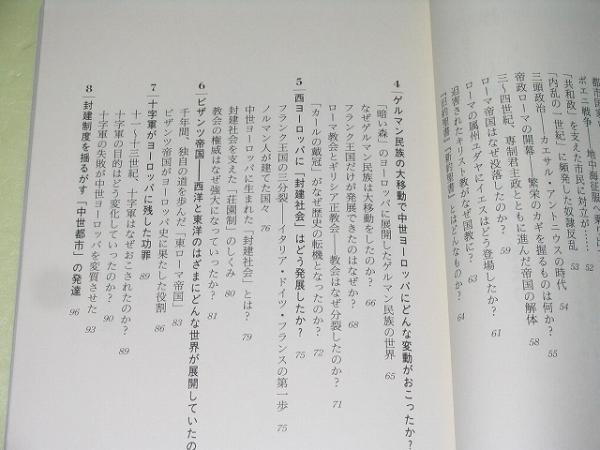 都市国家
ポエニ戦争――地中海征服へ乗り出
「共和政」を支えた市民に対立が…… 52
「内乱の一世紀」に頻発した奴隷反乱 53
三頭政治――カエサル・アントニウスの時代 54
帝政ローマの開幕――繁栄のカギを握るものは何か? 55
三〜四世紀、専制君主政とともに進んだ帝国の解体 58
ローマ帝国はなぜ没落したのか? 59
ローマの属州ユダヤにイエスはどう登場したか? 61
迫害されたキリスト教がなぜ国教に? 63
『旧約聖書』『新約聖書』とはどんなものか? 64
4 ゲルマン民族の大移動で中世ヨーロッパにどんな変動がおこったか?
「暗い森」のヨーロッパに展開したゲルマン民族の世界 65
なぜゲルマン民族は大移動をしたのか? 66
フランク王国だけが発展できたのはなぜか? 68
ローマ教会とギリシア正教会――教会はなぜ分裂したのか? 71
「カールの戴冠」がなぜ歴史の転機となったのか? 72
5 西ヨーロッパに「封建社会」はどう発展したか? 75
フランク王国の三分裂――イタリア・ドイツ・フランスの第一歩 75
ノルマン人が建てた国々 76
中世ヨーロッパに生まれた「封建社会」とは? 79
封建社会を支えた「荘園制」のしくみ 80
教会の権威はなぜ強大になっていったか? 81
6 ビザンツ帝国――西洋と東洋のはざまにどんな世界が展開していたの
千年間、独自の道を歩んだ「東ローマ帝国」 83
ビザンツ帝国がヨーロッパ史に果たした役割 86
7 十字軍がヨーロッパに残した功罪 89
十一〜十三世紀、十字軍はなぜおこされたのか? 89
十字軍の目的はどう変化していったか? 90
十字軍の失敗が中世ヨーロッパを変質させた 93
8 封建制度を揺るがす「中世都市」の発達 96